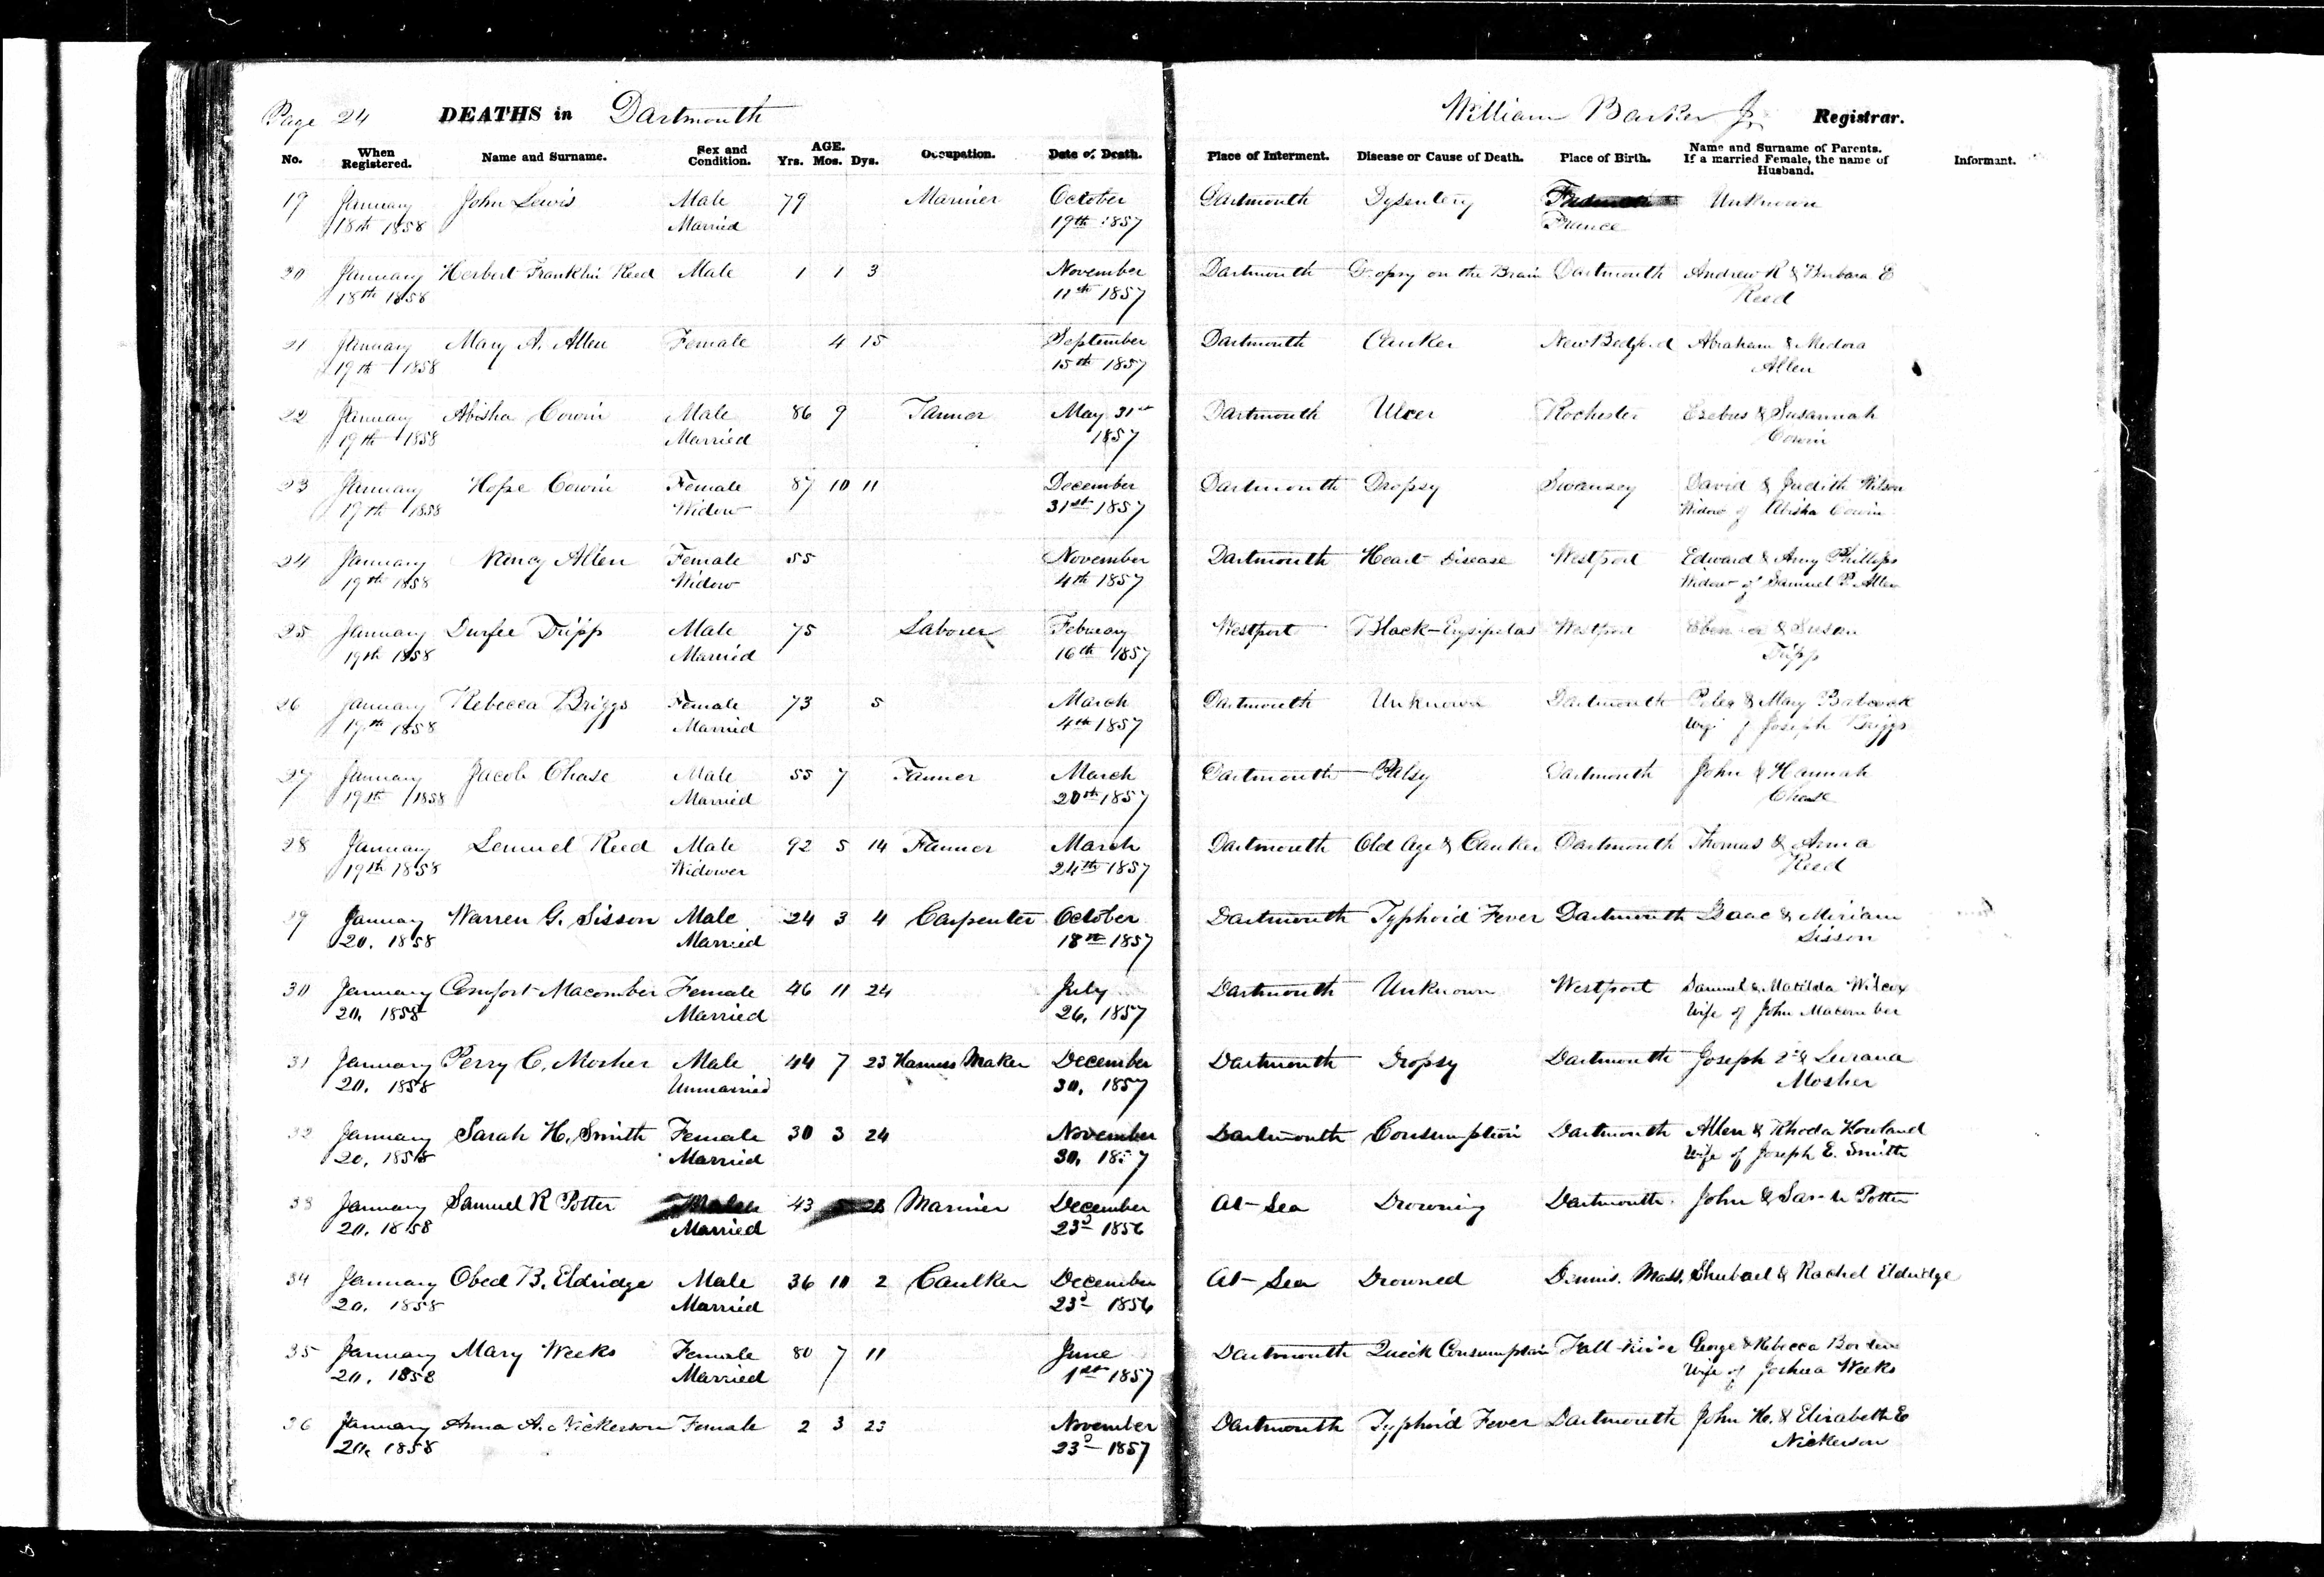 Page 24 DEATHS in Dartmouth William Barker Jr. Registrar.
No. When Registered. Name and Surname. Sex and Condition. AGE. Yrs. Mos. Dys. Occupation. Date of Death. Place of Interment. Disease or Cause of Death. Place of Birth. Name and Surname of Parents. If a married Female, the name of Husband. Informant.
19 January John Lewis Male 79 Mariner October Dartmouth Dysentery Unknown
18th 1858 Married 19th 1857 France
20 January Herbert Franklin Reed Male 1 1 3 November Dartmouth Dropsy on the Brain Dartmouth Andrew R & Barbara E
18th 1858 11th 1857 Reed
21 January Mary A. Allen Female 4 15 September Dartmouth Canker New Bedford Abraham & Medora
19th 1858 15th 1857 Allen
22 January Abisha Cowin Male 86 9 Tanner May 31st Dartmouth Ulcer Rochester & Susannah
19th 1858 Married 1857 Cowin
23 January Hope Cowin Female 87 10 11 December Dartmouth Dropsy Swansey David & Judith Wilson
19th 1858 Widow 31st 1857 Widow of Abisha Cowin
24 January Nancy Allen Female 55 November Dartmouth Heart Disease Westport Edward & Amy Phillips
19th 1858 Widow 4th 1857 Widow of Samuel P. Allen
25 January Durfee Tripp Male 75 Laborer February Westport Black-Erysipelas Westport & Susan
19th 1858 Married 16th 1857 Tripp
26 January Rebecca Briggs Female 73 5 March Dartmouth Unknown Dartmouth Peleg & Mary Babcock
19th 1858 Married 4th 1857 Wife of Joseph Briggs
27 January Jacob Chase Male 55 7 Farmer March Dartmouth Palsy Dartmouth John & Hannah
19th 1858 Married 20th 1857 Chase
28 January Lemuel Reed Male 92 5 14 Farmer March Dartmouth Old Age & Canker Dartmouth Thomas & Anna
19th 1858 Widower 24th 1857 Reed
29 January Warren G. Sisson Male 24 3 4 Carpenter October Dartmouth Typhoid Fever Dartmouth Isaac & Miriam
20. 1858 Married 18th 1857 Sisson
30 January Comfort Macomber Female 46 11 24 July Dartmouth Unknown Westport Samuel & Matilda Wilcox
20, 1858 Married 26, 1857 Wife of John Macomber
31 January Perry C. Mosher Male 44 7 23 Harness Maker December Dartmouth Dropsy Dartmouth Joseph 2d & Lurana
20. 1858 Unmarried 30, 1857 Mosher
32 January Sarah H. Smith Female 30 3 24 November Dartmouth Consumption Dartmouth Allen & Rhoda Howland
20, 1858 Married 30, 1857 Wife of Joseph E. Smith
33 January Samuel R Potter Male 43 28 Mariner December At-Sea Drowning Dartmouth. John & Sarah Potter
20. 1858 Married 23d 1856
34 January Obed B. Eldridge Male 36 10 2 Caulker December At-Sea Drowned Dennis. Mass. Shubael & Rachel Eldridge
20. 1858 Married 23d 1856
35 January Mary Weeks Female 80 7 11 June Dartmouth Quick Consumption Fall-River George & Rebecca Borden
20. 1858 Married 1st 1857 Wife of Joshua Weeks
36 January Anna A. Nickerson Female 2 3 23 November Dartmouth Typhoid Fever Dartmouth John H. & Elizabeth E
20, 1858 23d 1857 Nickerson